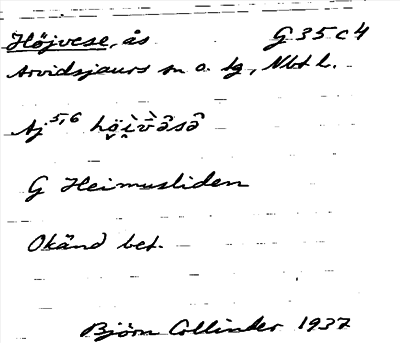 Höjvese, ås G 35 c 4
Arvidsjaurs sn o. tg, Nbt l.
Aj 5,6
G Heimusliden
Okänd bet.
Björn Collinder 1937